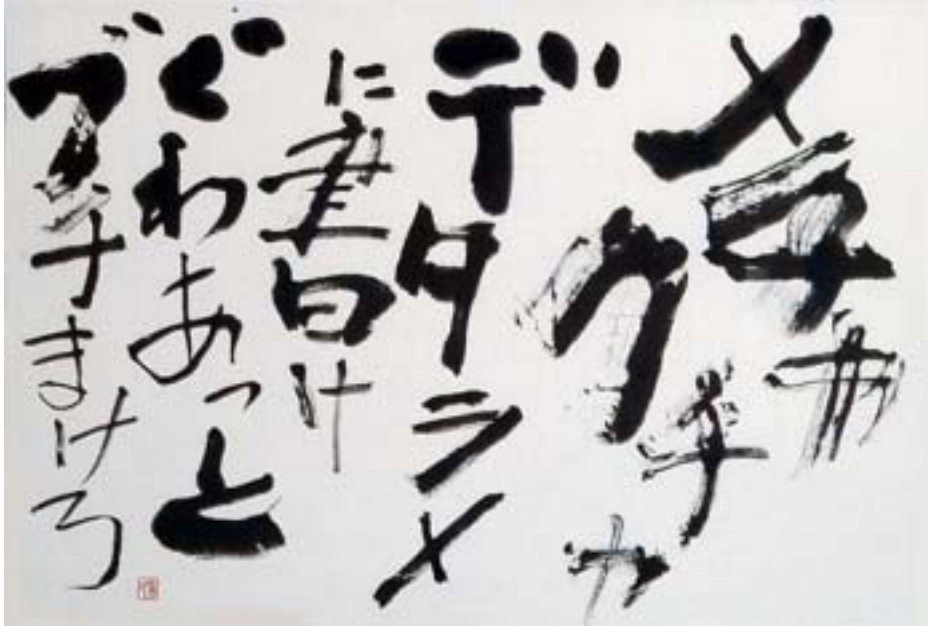 メチャ
クチャ
デタラメ
に書け
ぐわあっと
ブチまけろ